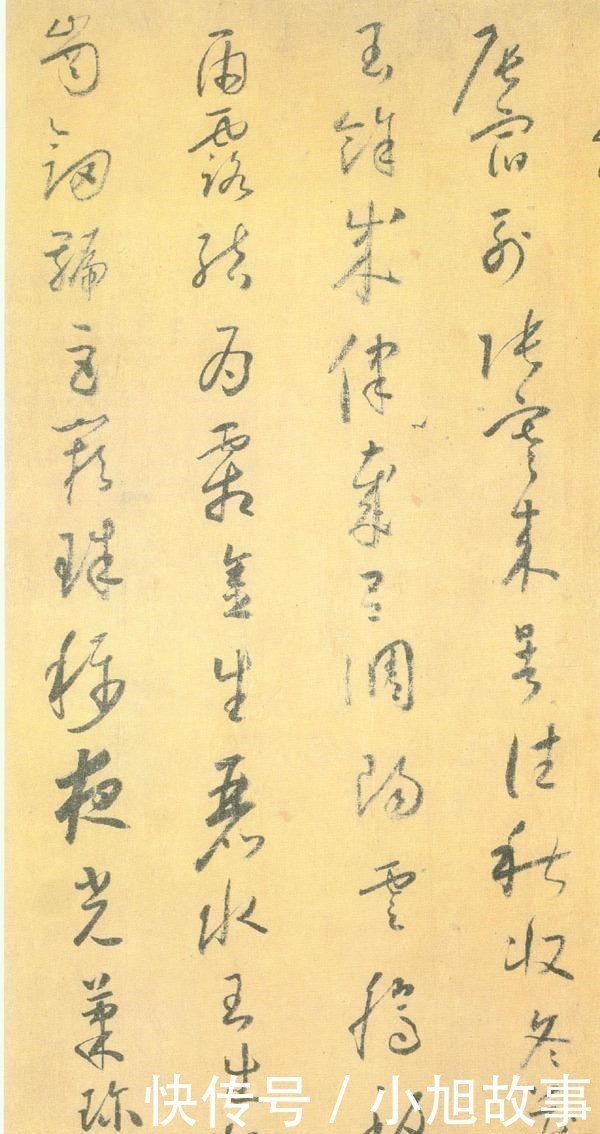 辰宿列張寒来暑往秋收冬藏
閏餘成律歲呂調陽雲騰致
雨露結為霜金生麗水玉出
崗劒號巨闕珠稱夜光菓珍
快传号 / 小旭故事